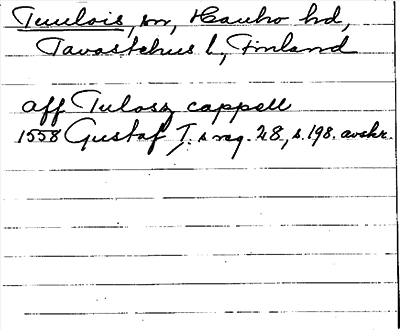 Tuulois, sn, Hauho hd,
Tavastehus l., Finland
aff Tulosz cappell
1558 Gustaf I:s reg. 28, s. 198. avskr.